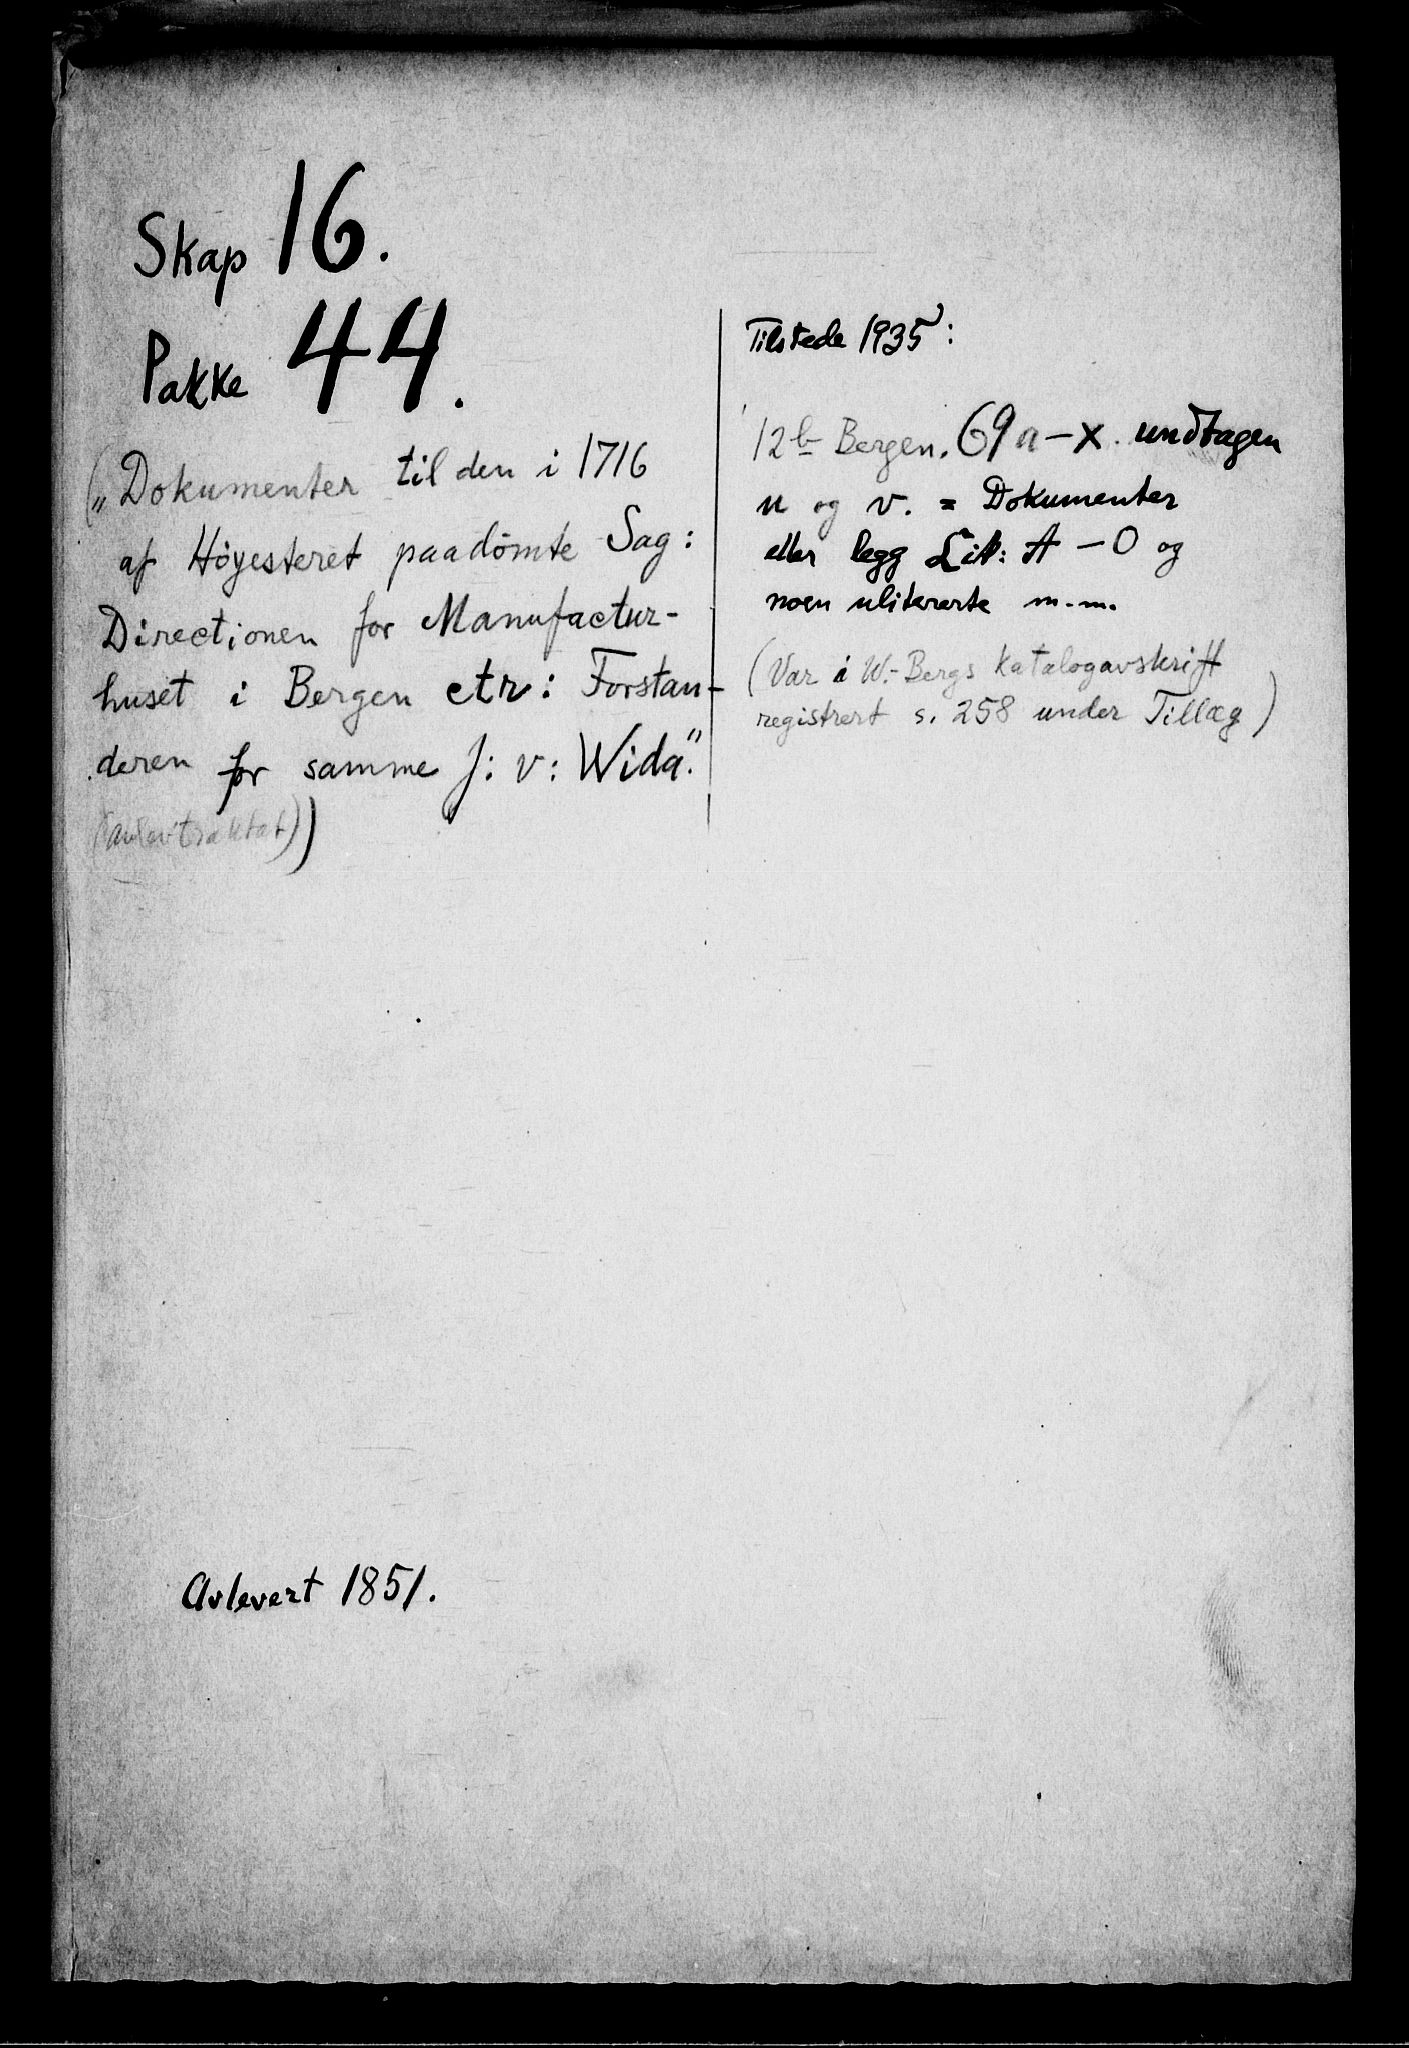 Skap 16.
Pakke 44.
(„Dokumenter til den i 1716
af Höyesteret paadömte Sag:
Directionen for Manufactur-
huset i Bergen ctr: Forstan-
deren for samme J: v: Wida".
Tilstede 1935:
12b Bergen. 69 a - x. undtagen
u og v. = Dokumenter
eller legg Lit: A - O og
noen uliterarte m.m.
(Var i W.-Bergs katalogavskrift
registrert s. 258 under Tillæg)
Avlevert 1851.